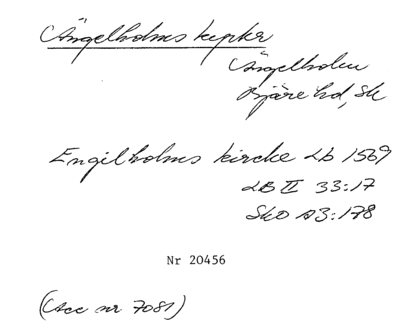 Ängelholms kyrka
Ängelholm
Bjäre hd, Sk
Engilholms kircke Lb 1569
LB II 33:17
SkO A3:178
Nr 20456
(Acc nr 7081)